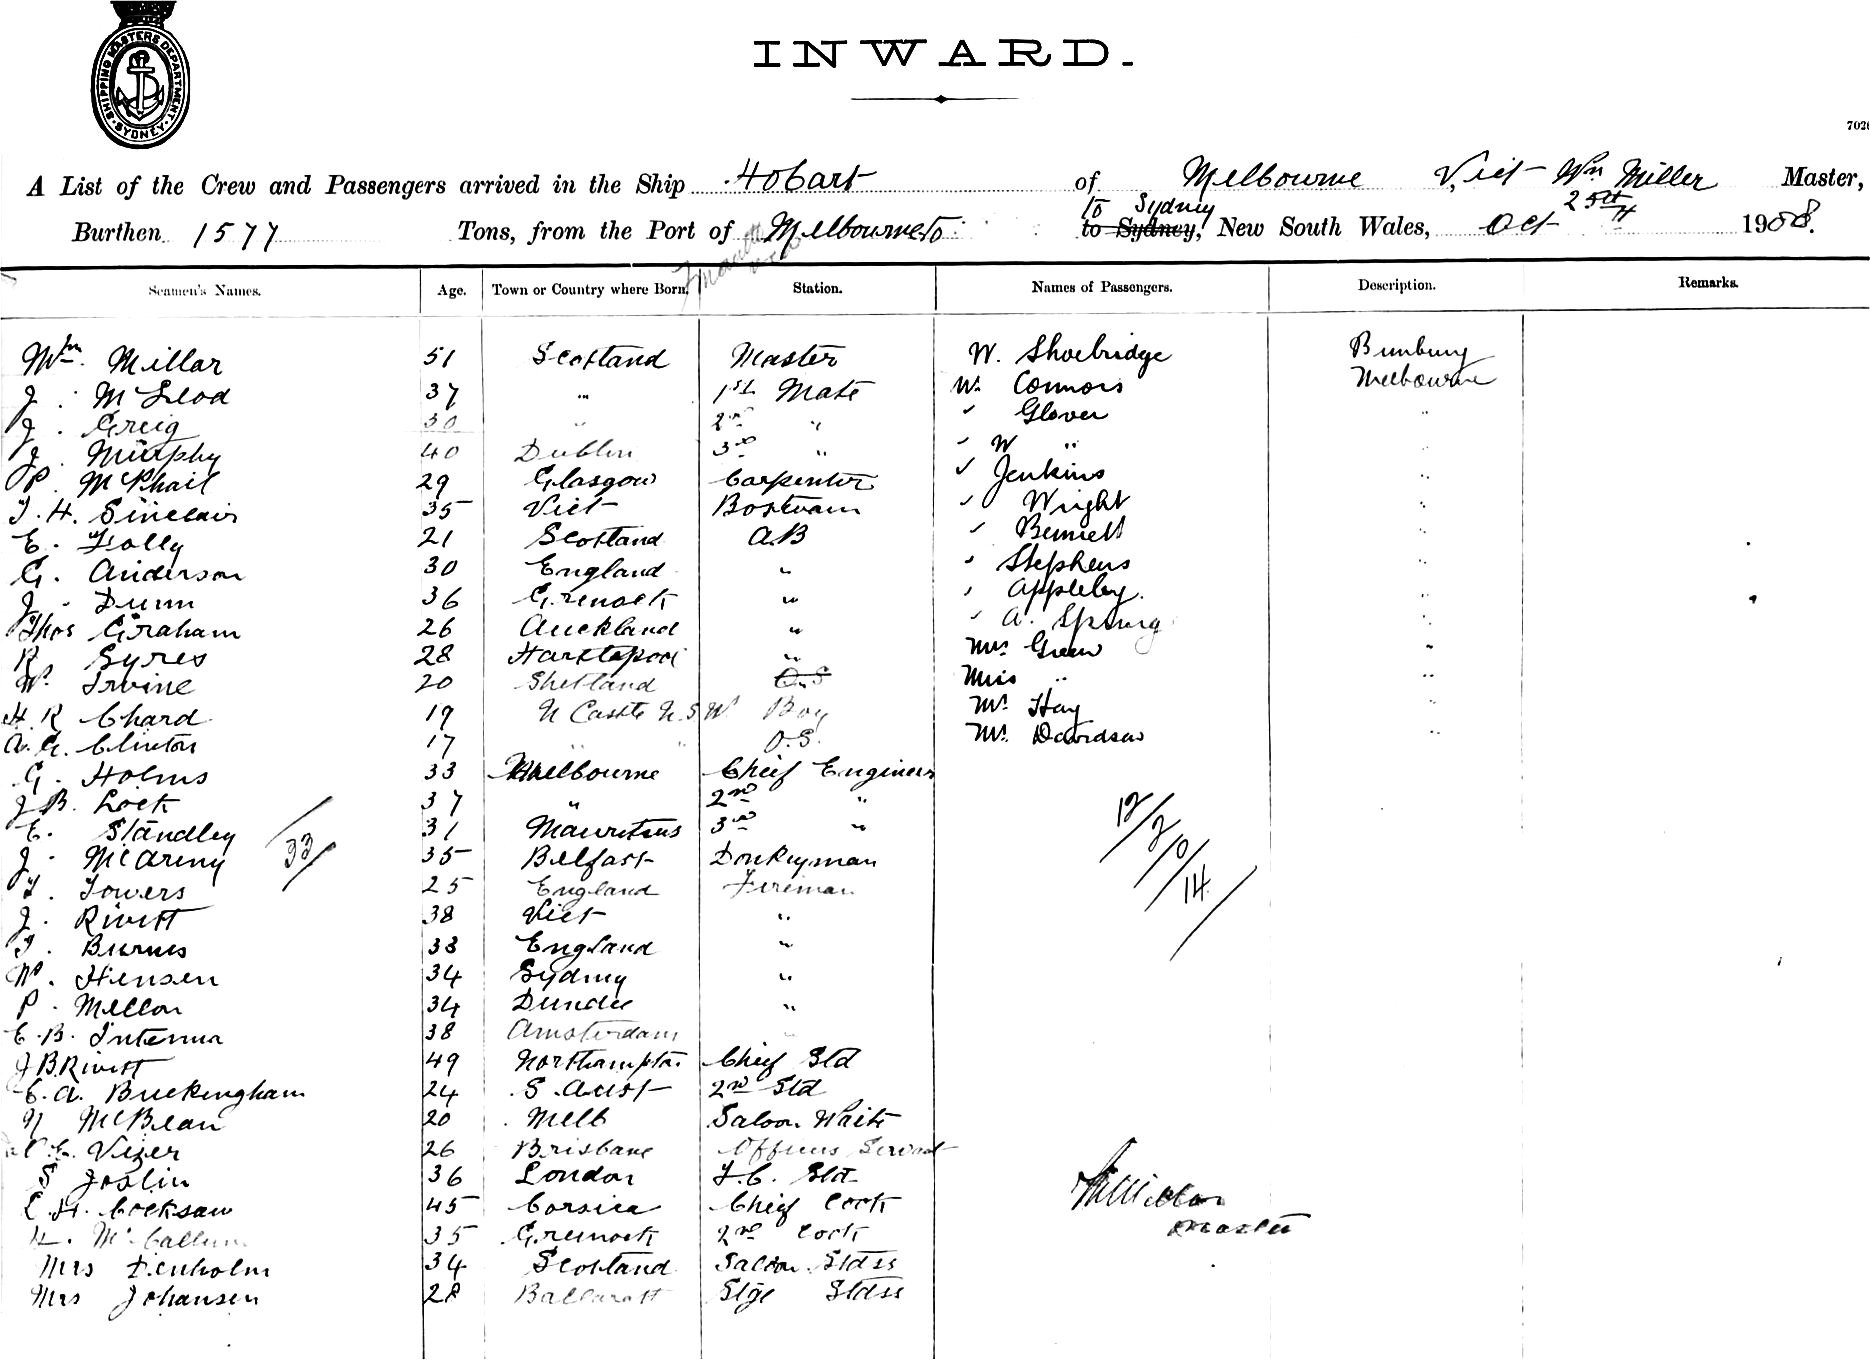 SHIPPING MASTERS DEPARTMENT. SYDNEY
INWARD.
702
A List of the Crew and Passengers arrived in the Ship Hobart of Melbourne Vict Wm Miller Master,
Burthen 1577 Tons, from the Port of Melbourne to to Sydney to Sydney, New South Wales, Oct 25th 1908.
Seamen's Names. Age. Town or Country where Born. Station. Names of Passengers. Description. Remarks.
Wm. Millar 51 Scotland Master W. Shoebridge Bunbury
J. McLeod 37 " 1st Mate W. Connors Melbourne
J. Greig 30 " 2nd " " Glover "
J. Murphy 40 Dublin 3rd " " W " "
P. McPhail 29 Glasgow Carpenter " Jenkins "
J. H. Sinclair 35 Vict Bostwain " Wright "
E. Folly 21 Scotland A.B " Bennett "
G. Anderson 30 England " " Stephens "
J. Dunn 36 Greenock " " Appleby. "
Thos Graham 26 Auckland " " A. Spring "
R. Syres 28 Hartlepool " Mrs Green "
W. Irvine 20 Shetland O.S Miss " "
H. R Chard 19 N Castle N.S.W. Boy Mr. Hay "
A. G. Clinton 17 " " O.S. Mr. Davidson "
G. Holms 33 Melbourne Chief Engineer
J. B. Lock 37 " 2nd " 12/2/0/14/
E. Standley 31 Mauritius 3rd "
J. McAreny 35 Belfast Donkeyman
33/
T. Towers 25 England Fireman
J. Rivett 38 Vict "
T. Burns 33 England "
W. Hensen 34 Sydney "
P. Mellon 34 Dundee "
E. B. 38 Amsterdam "
J B Rivett 49 Northampton Chief Std
E. A. Buckingham 24 S. Aust 2nd Std
N McBean 20 Melb Saloon Waiter
Vizer 26 Brisbane Officers Servant
S Joslin 36 London F.C. Std
C. H. Cocksaw 45 Corsica Chief Cook
H. McCallum 35 Greenock 2nd Cook
Mrs Denholm 34 Scotland Saloon Stdss
Mrs Johansen 28 Ballaratt Stge Stdss
Wm Millar
Master